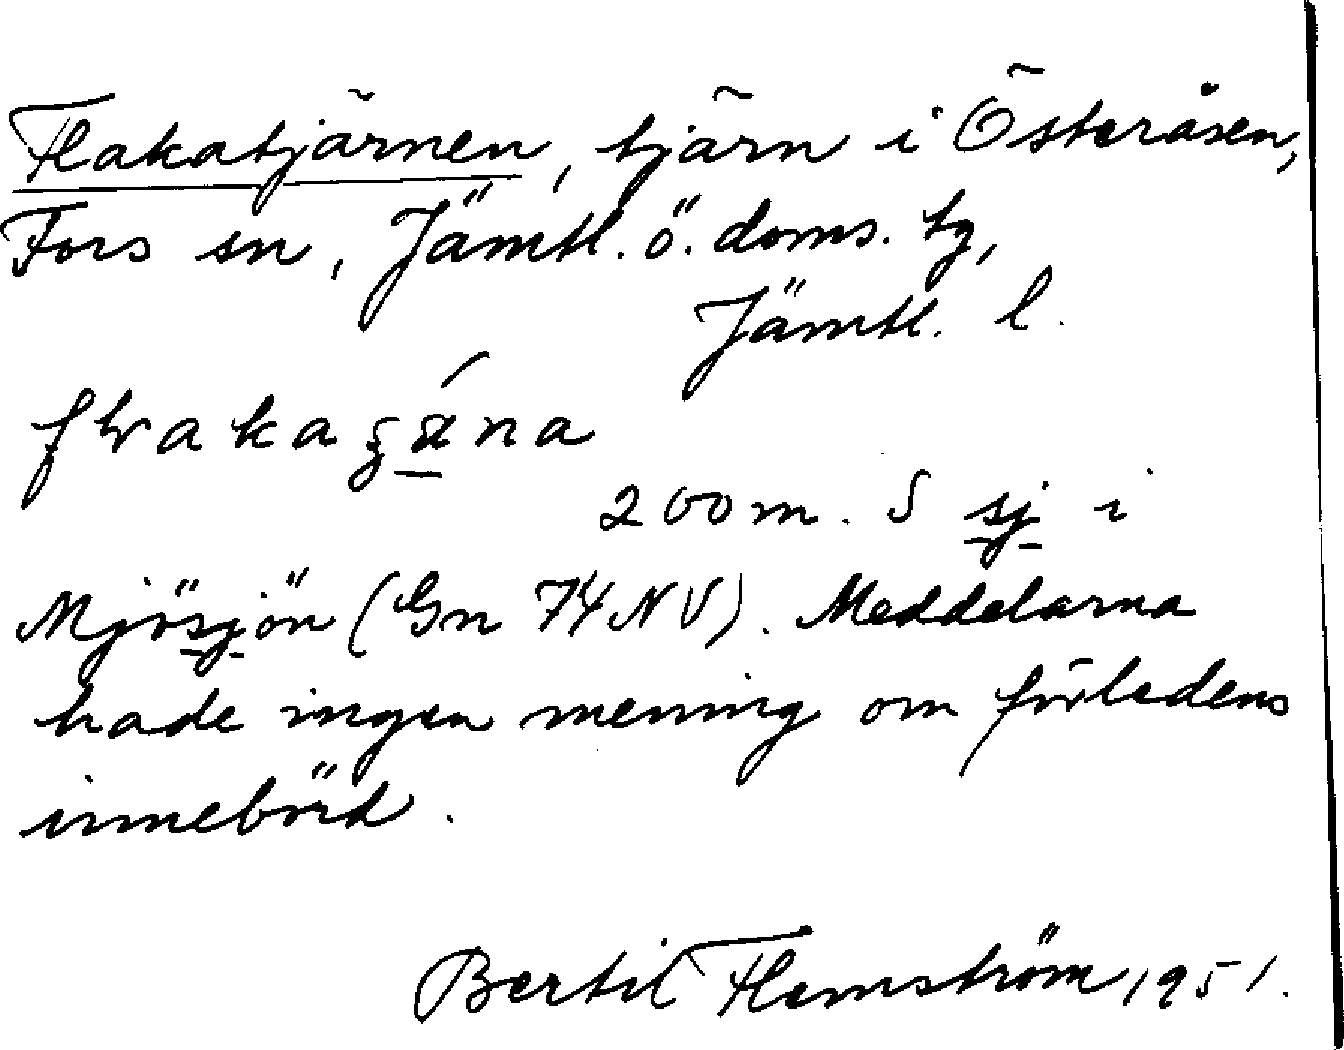 Flakatjärnen, tjärn i Österåsen,
Fors sn, Jämtl. ö. doms. tg,
Jämtl. l.
200 m. S sj i
Mjösjön (Gn 74 NV). Meddelarna
hade ingen mening om förledens
innebörd.
Bertil Flemström, 1951.